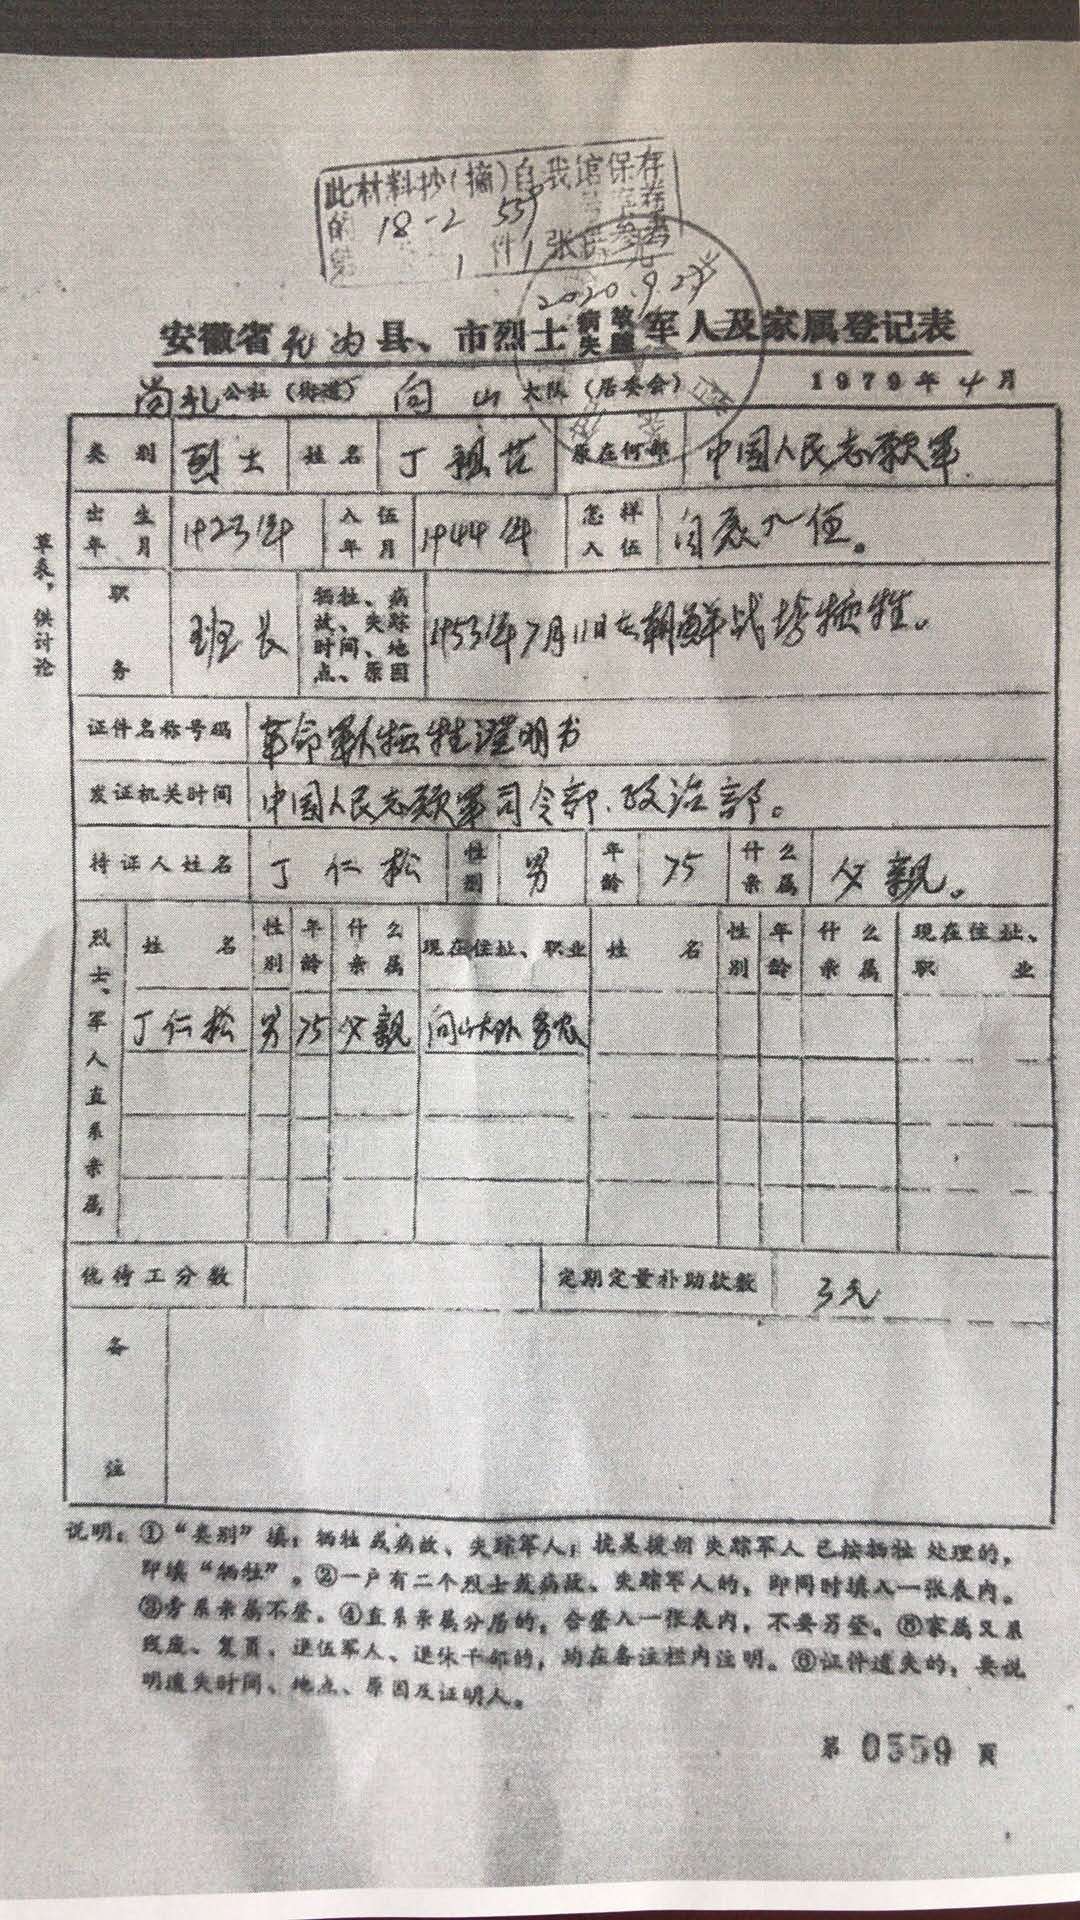 此材料抄(摘)自我馆保存
的 18-2 559
1 件 1 张供参考
2020.9.27
安徽省无为县、市烈士病故失踪军人及家属登记表
尚礼公社(街道) 向山大队(居委会) 1979年4月
草表,供讨论
类别 烈士 姓名 丁祖 原在何部 中国人民志愿军
出生年月 1923年 入伍年月 1944年 怎样入伍 自愿入伍。
职务 班长 牺牲、病故、失踪时间、地点、原因 1953年7月11日在朝鲜战场牺牲。
证件名称号码 革命军人牺牲证明书
发证机关时间 中国人民志愿军司令部、政治部。
持证人姓名 丁仁松 性别 男 年龄 75 什么亲属 父亲。
烈士、军人直系亲属
姓名 性别 年龄 什么亲属 现在住址、职业 姓名 性别 年龄 什么亲属 现在住址、职业
丁仁松 男 75 父亲 向山大队 务农
优待工分数 定期定量补助款数 3元
备注
说明:①“类别”填:牺牲或病故、失踪军人;抗美援朝失踪军人已按牺牲处理的,
即填“牺牲”。②一户有二个烈士或病故、失踪军人的,即同时填入一张表内。
③旁系亲属不登。④直系亲属分居的,合登入一张表内,不要另登。⑤家属又系
残废、复员、退伍军人、退休干部的,均在备注栏内注明。⑥证件遗失的,要说
明遗失时间、地点、原因及证明人。
第 0559 页